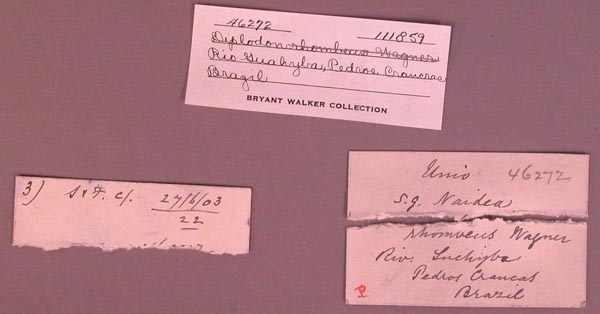 46272 111859
Diplodon rhombeus Wagner
Rio Guahyba, Pedros Crancras
Brazil
BRYANT WALKER COLLECTION
3) S & F. c/. 27/6/03
22
Unio 46272
S.g. Naidea
rhombeus Wagner
Riv. Suchyba
Pedros Crancas
Brazil